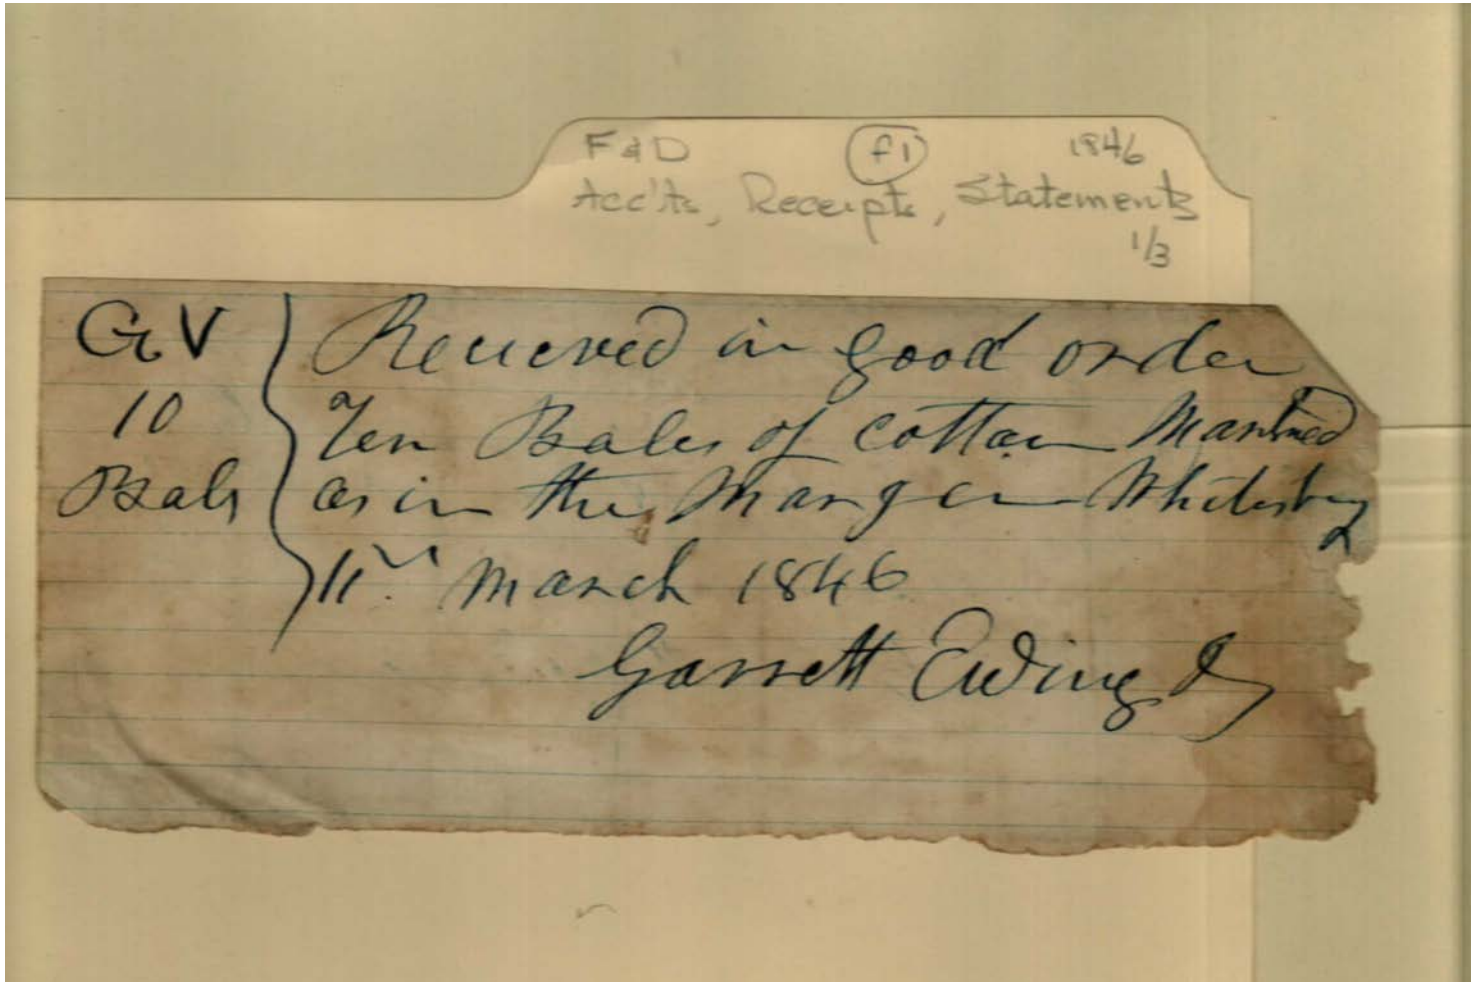 F & D f1 1846
Acc'ts, Receipts, Statements
1/3
GV
10
Bals
Recieved in good order
Ten Bales of cotton Marked
as in the Margin Whitesburg
11th March 1846
Garrett Ewing